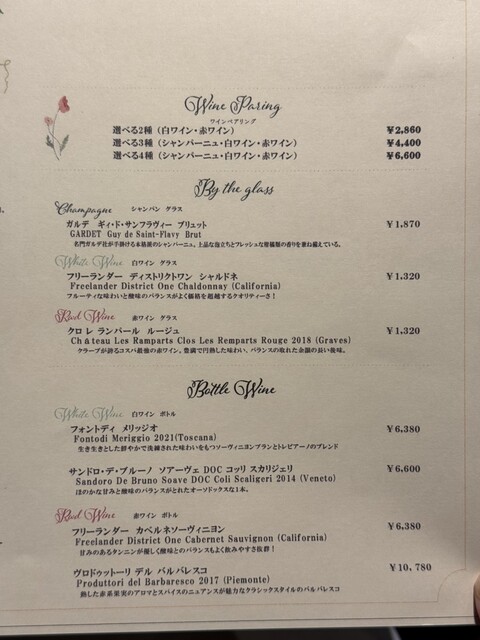 Wine Paring
ワインペアリング
選べる2種（白ワイン・赤ワイン） ￥2,860
選べる3種（シャンパーニュ・白ワイン・赤ワイン） ￥4,400
選べる4種（シャンパーニュ・白ワイン・赤ワイン） ￥6,600
By the glass
Champagne シャンパン グラス
ガルデ ギィ・ド・サンフラヴィー ブリュット ￥1,870
GARDET Guy de Saint-Flavy Brut
名門ガルデ社が手掛ける本格派のシャンパーニュ、上品な泡立ちとフレッシュな柑橘類の香りを兼ね備えている。
White Wine 白ワイン グラス
フリーランダー ディストリクトワン シャルドネ ￥1,320
Freelander District One Chaldonnay (California)
フルーティな味わいと酸味のバランスがよく価格を超越するクオリティーさ！
Red Wine 赤ワイン グラス
クロ レ ランパール ルージュ ￥1,320
Château Les Ramparts Clos Les Remparts Rouge 2018 (Graves)
クラーブが誇るコスパ最強の赤ワイン。豊満で円熟した味わい、バランスの取れた余韻の長い後味。
Bottle Wine
White Wine 白ワイン ボトル
フォントディ メリッジオ ￥6,380
Fontodi Meriggio 2021(Toscana)
生き生きとした鮮やかで洗練された味わいをもつソーヴィニヨンブランとトレビアーノのブレンド
サンドロ・デ・ブルーノ ソアーヴェ DOC コッリ スカリジェリ ￥6,600
Sandoro De Bruno Soave DOC Coli Scaligeri 2014 (Veneto)
ほのかな甘みと酸味のバランスがとれたオーソドックスな1本。
Red Wine 赤ワイン ボトル
フリーランダー カベルネソーヴィニヨン ￥6,380
Freelander District One Cabernet Sauvignon (California)
甘みのあるタンニンが優しく酸味とのバランスもよく飲みやすさ抜群！
プロドゥットーリ デル バルバレスコ ￥10,780
Produttori del Barbaresco 2017 (Piemonte)
熟した赤系果実のアロマとスパイスのニュアンスが魅力なクラシックスタイルのバルバレスコ